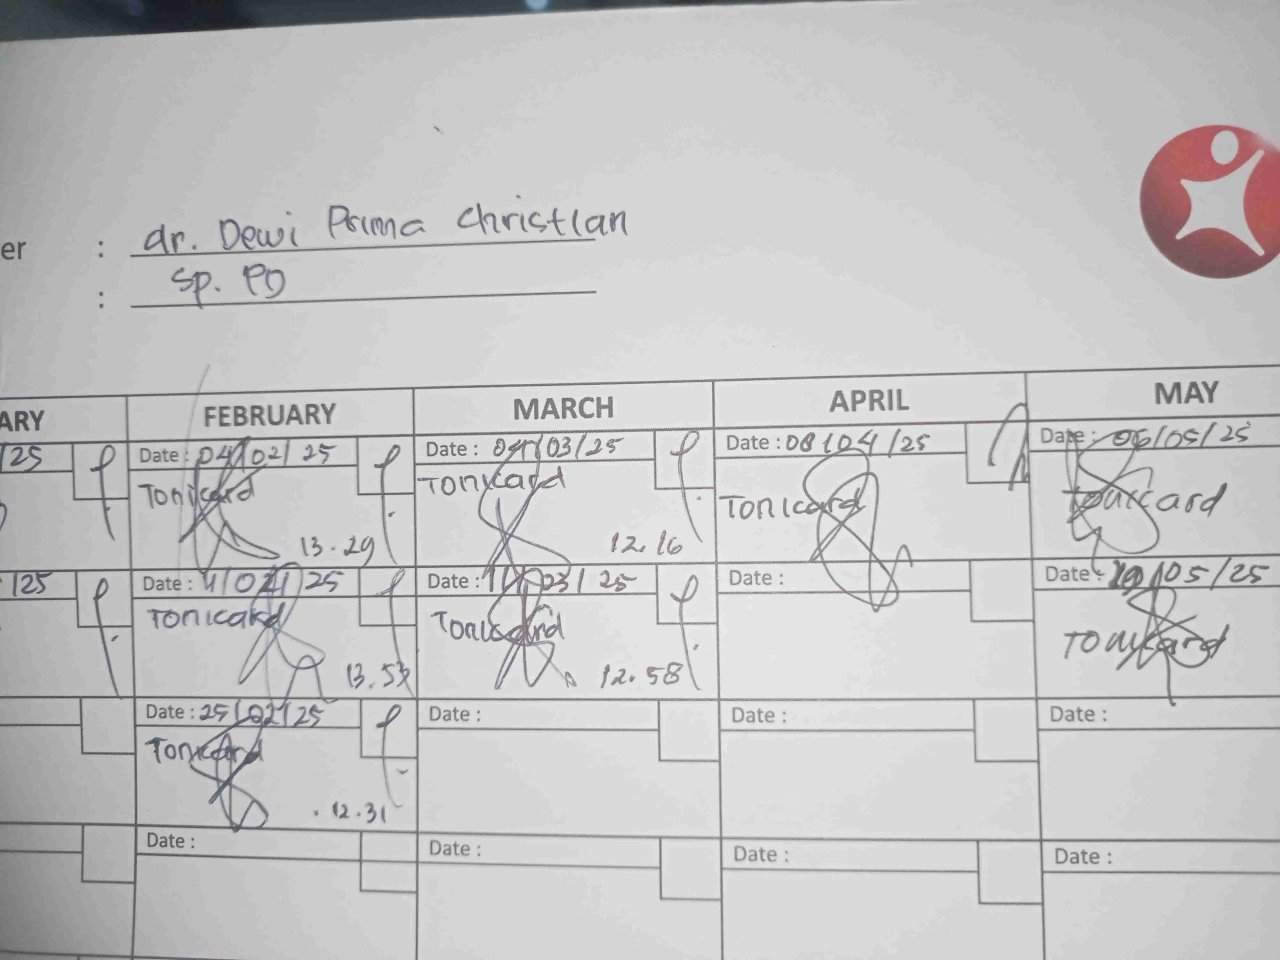 er : dr. Dewi Prima Christian
: Sp. PD
ARY FEBRUARY MARCH APRIL MAY
/25 Date : 04/02/25 Date : 04/03/25 Date : 08/04/25 Date : 06/05/25
Tonicard Tonicard Tonicard Tonicard
13.29 12.16
/25 Date : 11/02/25 Date : 11/03/25 Date : Date : /05/25
Tonicard Tonicard Tonicard
13.53 12.58
Date : 25/02/25 Date : Date : Date :
Tonicard
12.31
Date : Date : Date : Date :